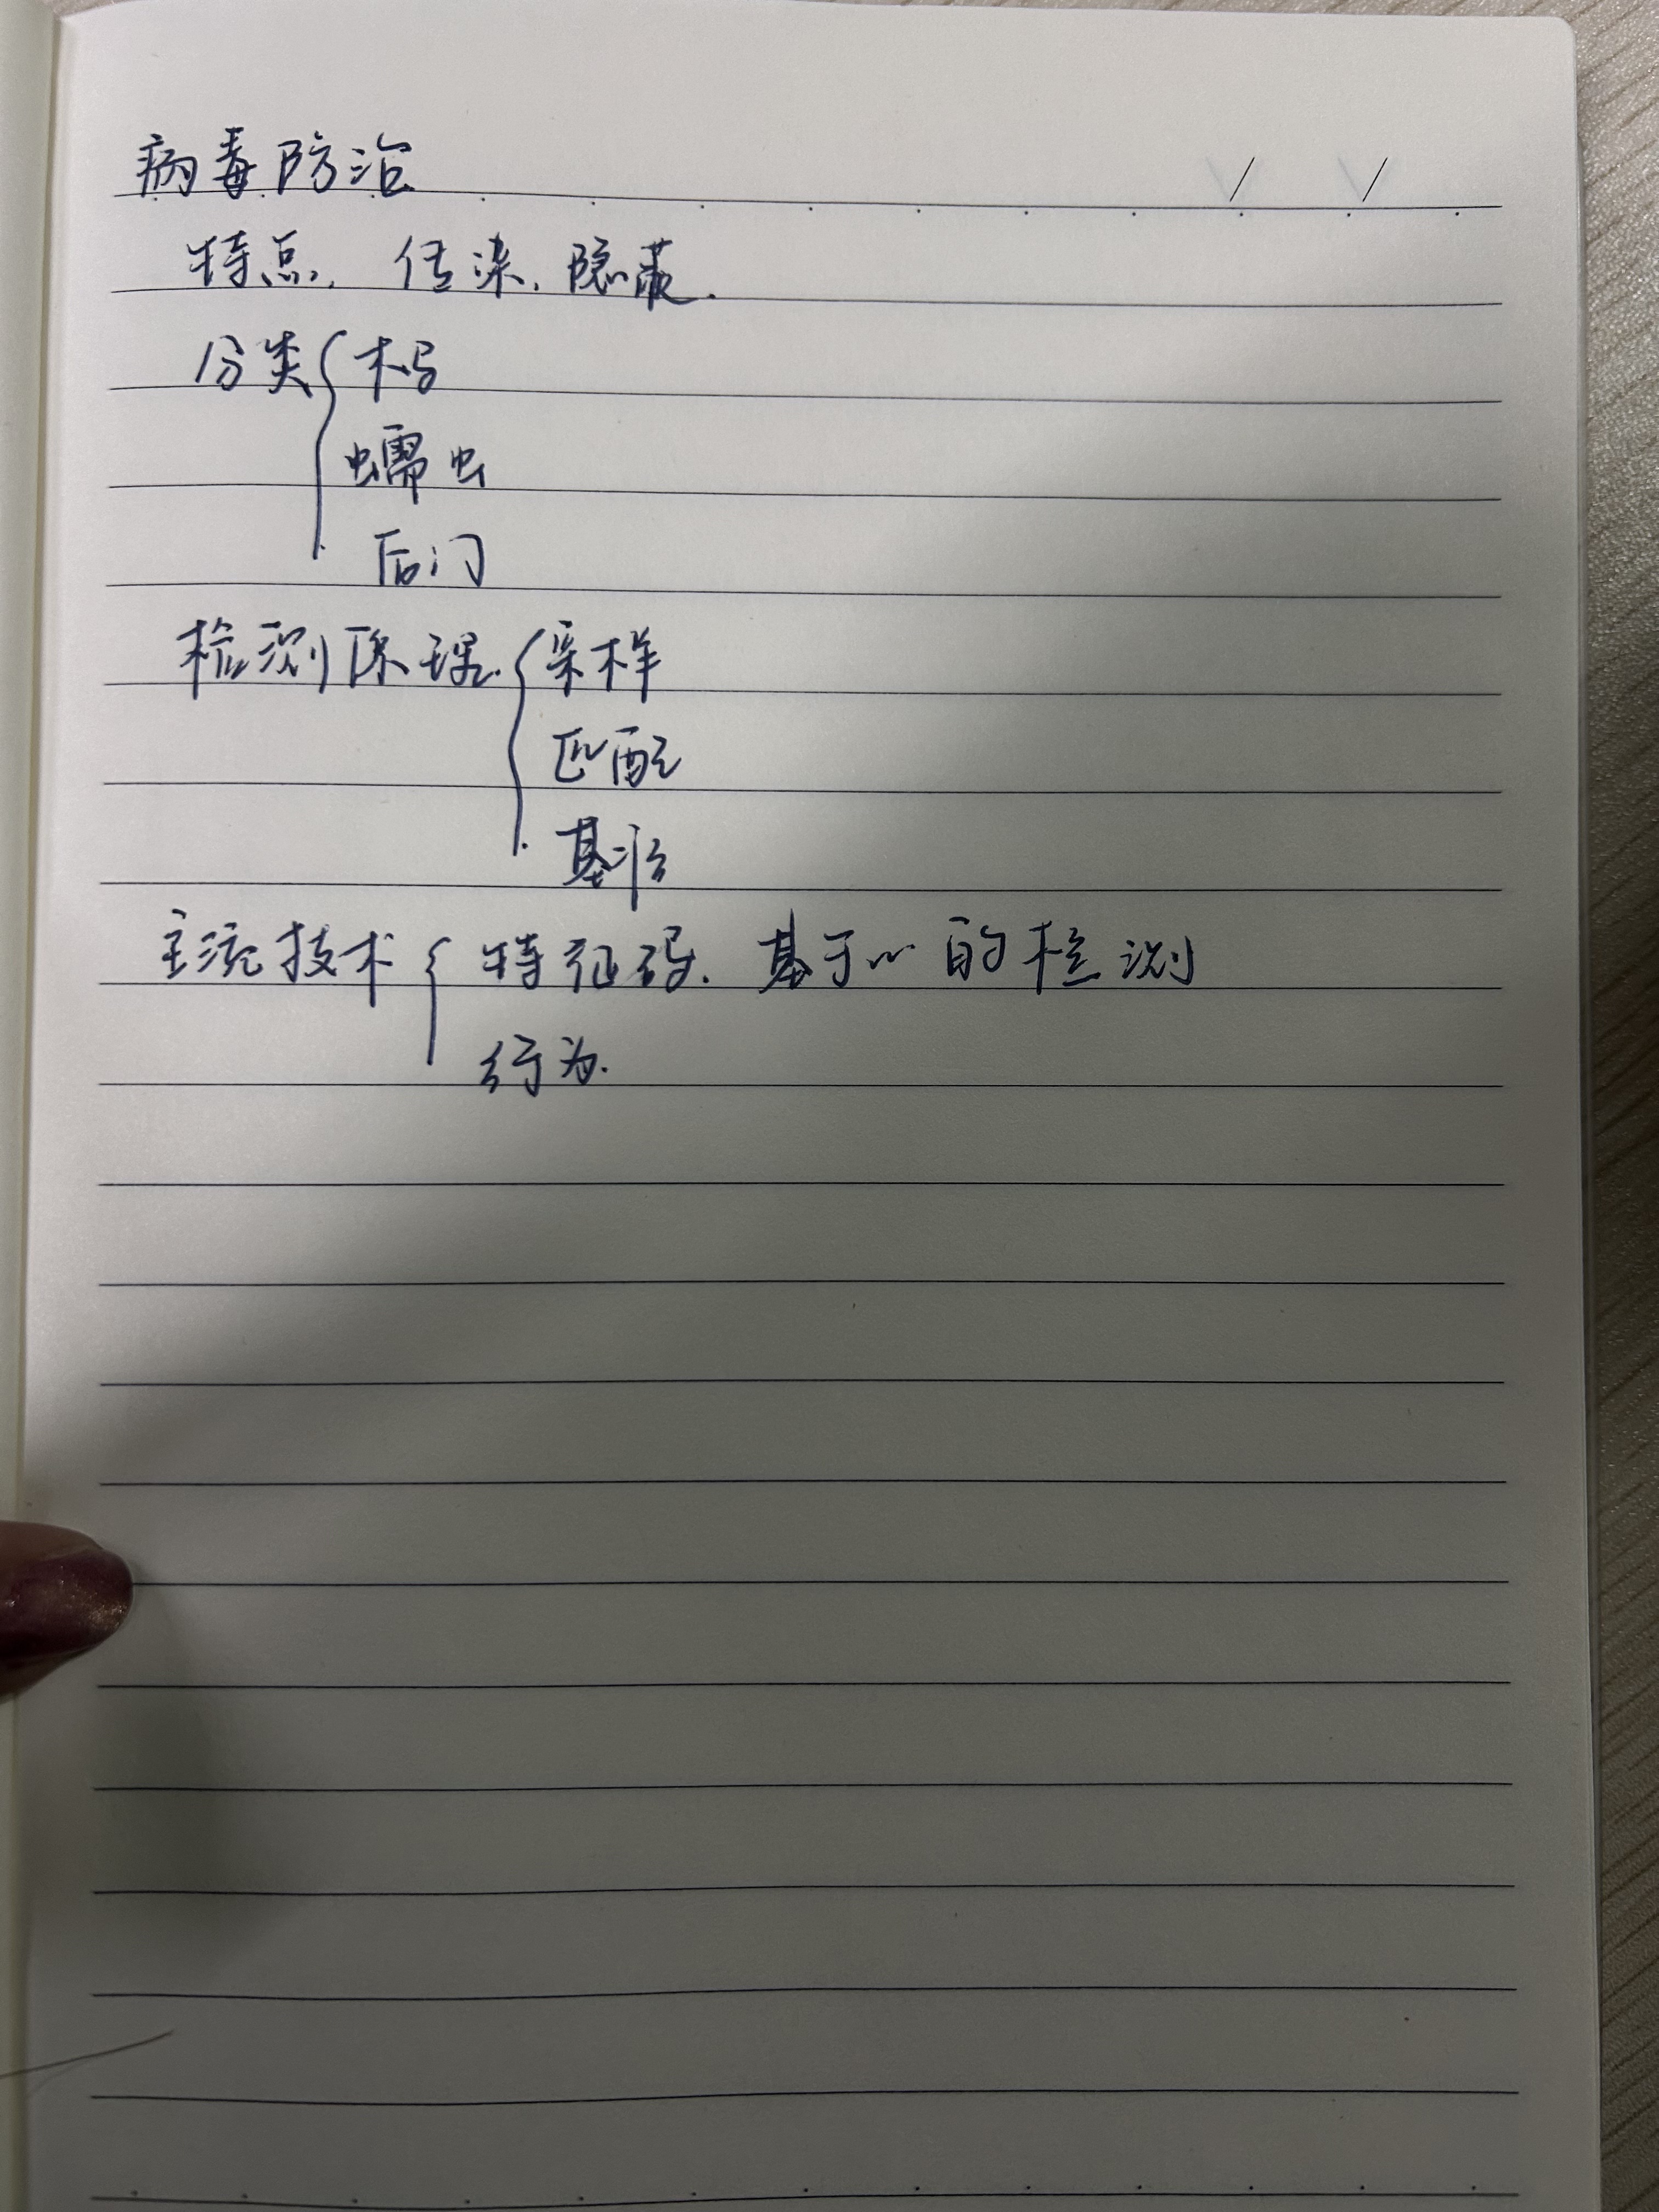 病毒防治
特点. 传染. 隐蔽.
分类{ 木马
蠕虫
后门
检测原理. { 采样
匹配
基准
主流技术{ 特征码. 基于…的检测
行为.